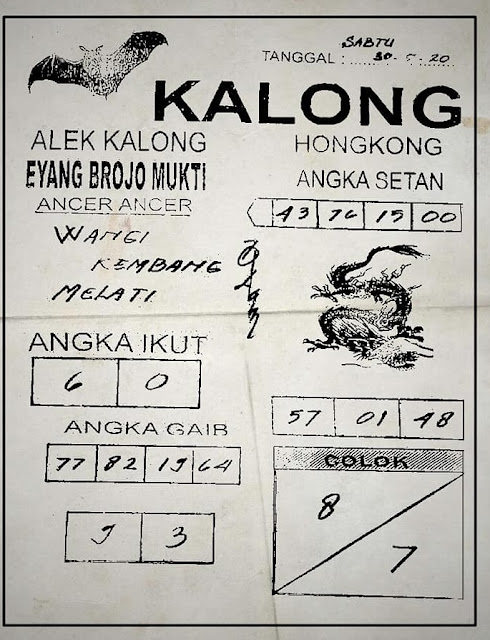 SABTU
TANGGAL : 30-5-20
KALONG
ALEK KALONG
EYANG BROJO MUKTI
ANCER ANCER
WANGI
KEMBANG
MELATI
HONGKONG
ANGKA SETAN
43 76 15 00
ANGKA IKUT
6 0
ANGKA GAIB
77 82 19 64
9 3
57 01 48
COLOK
8
7